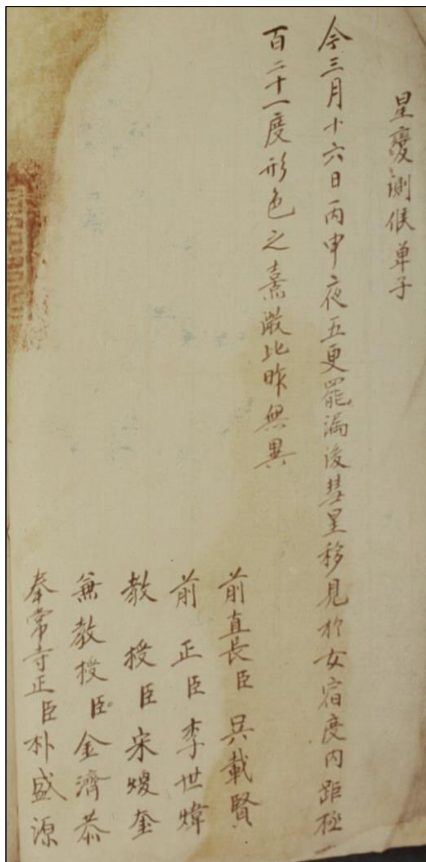 星變測候單子
今三月十六日丙申夜五更罷漏後彗星移見於女宿度內距極一
百二十一度形色之熹微比昨無異
前直長臣 吳載賢
前正臣李世煒
教授臣宋煖奎
兼教授臣金濟恭
奉常寺正臣朴盛源